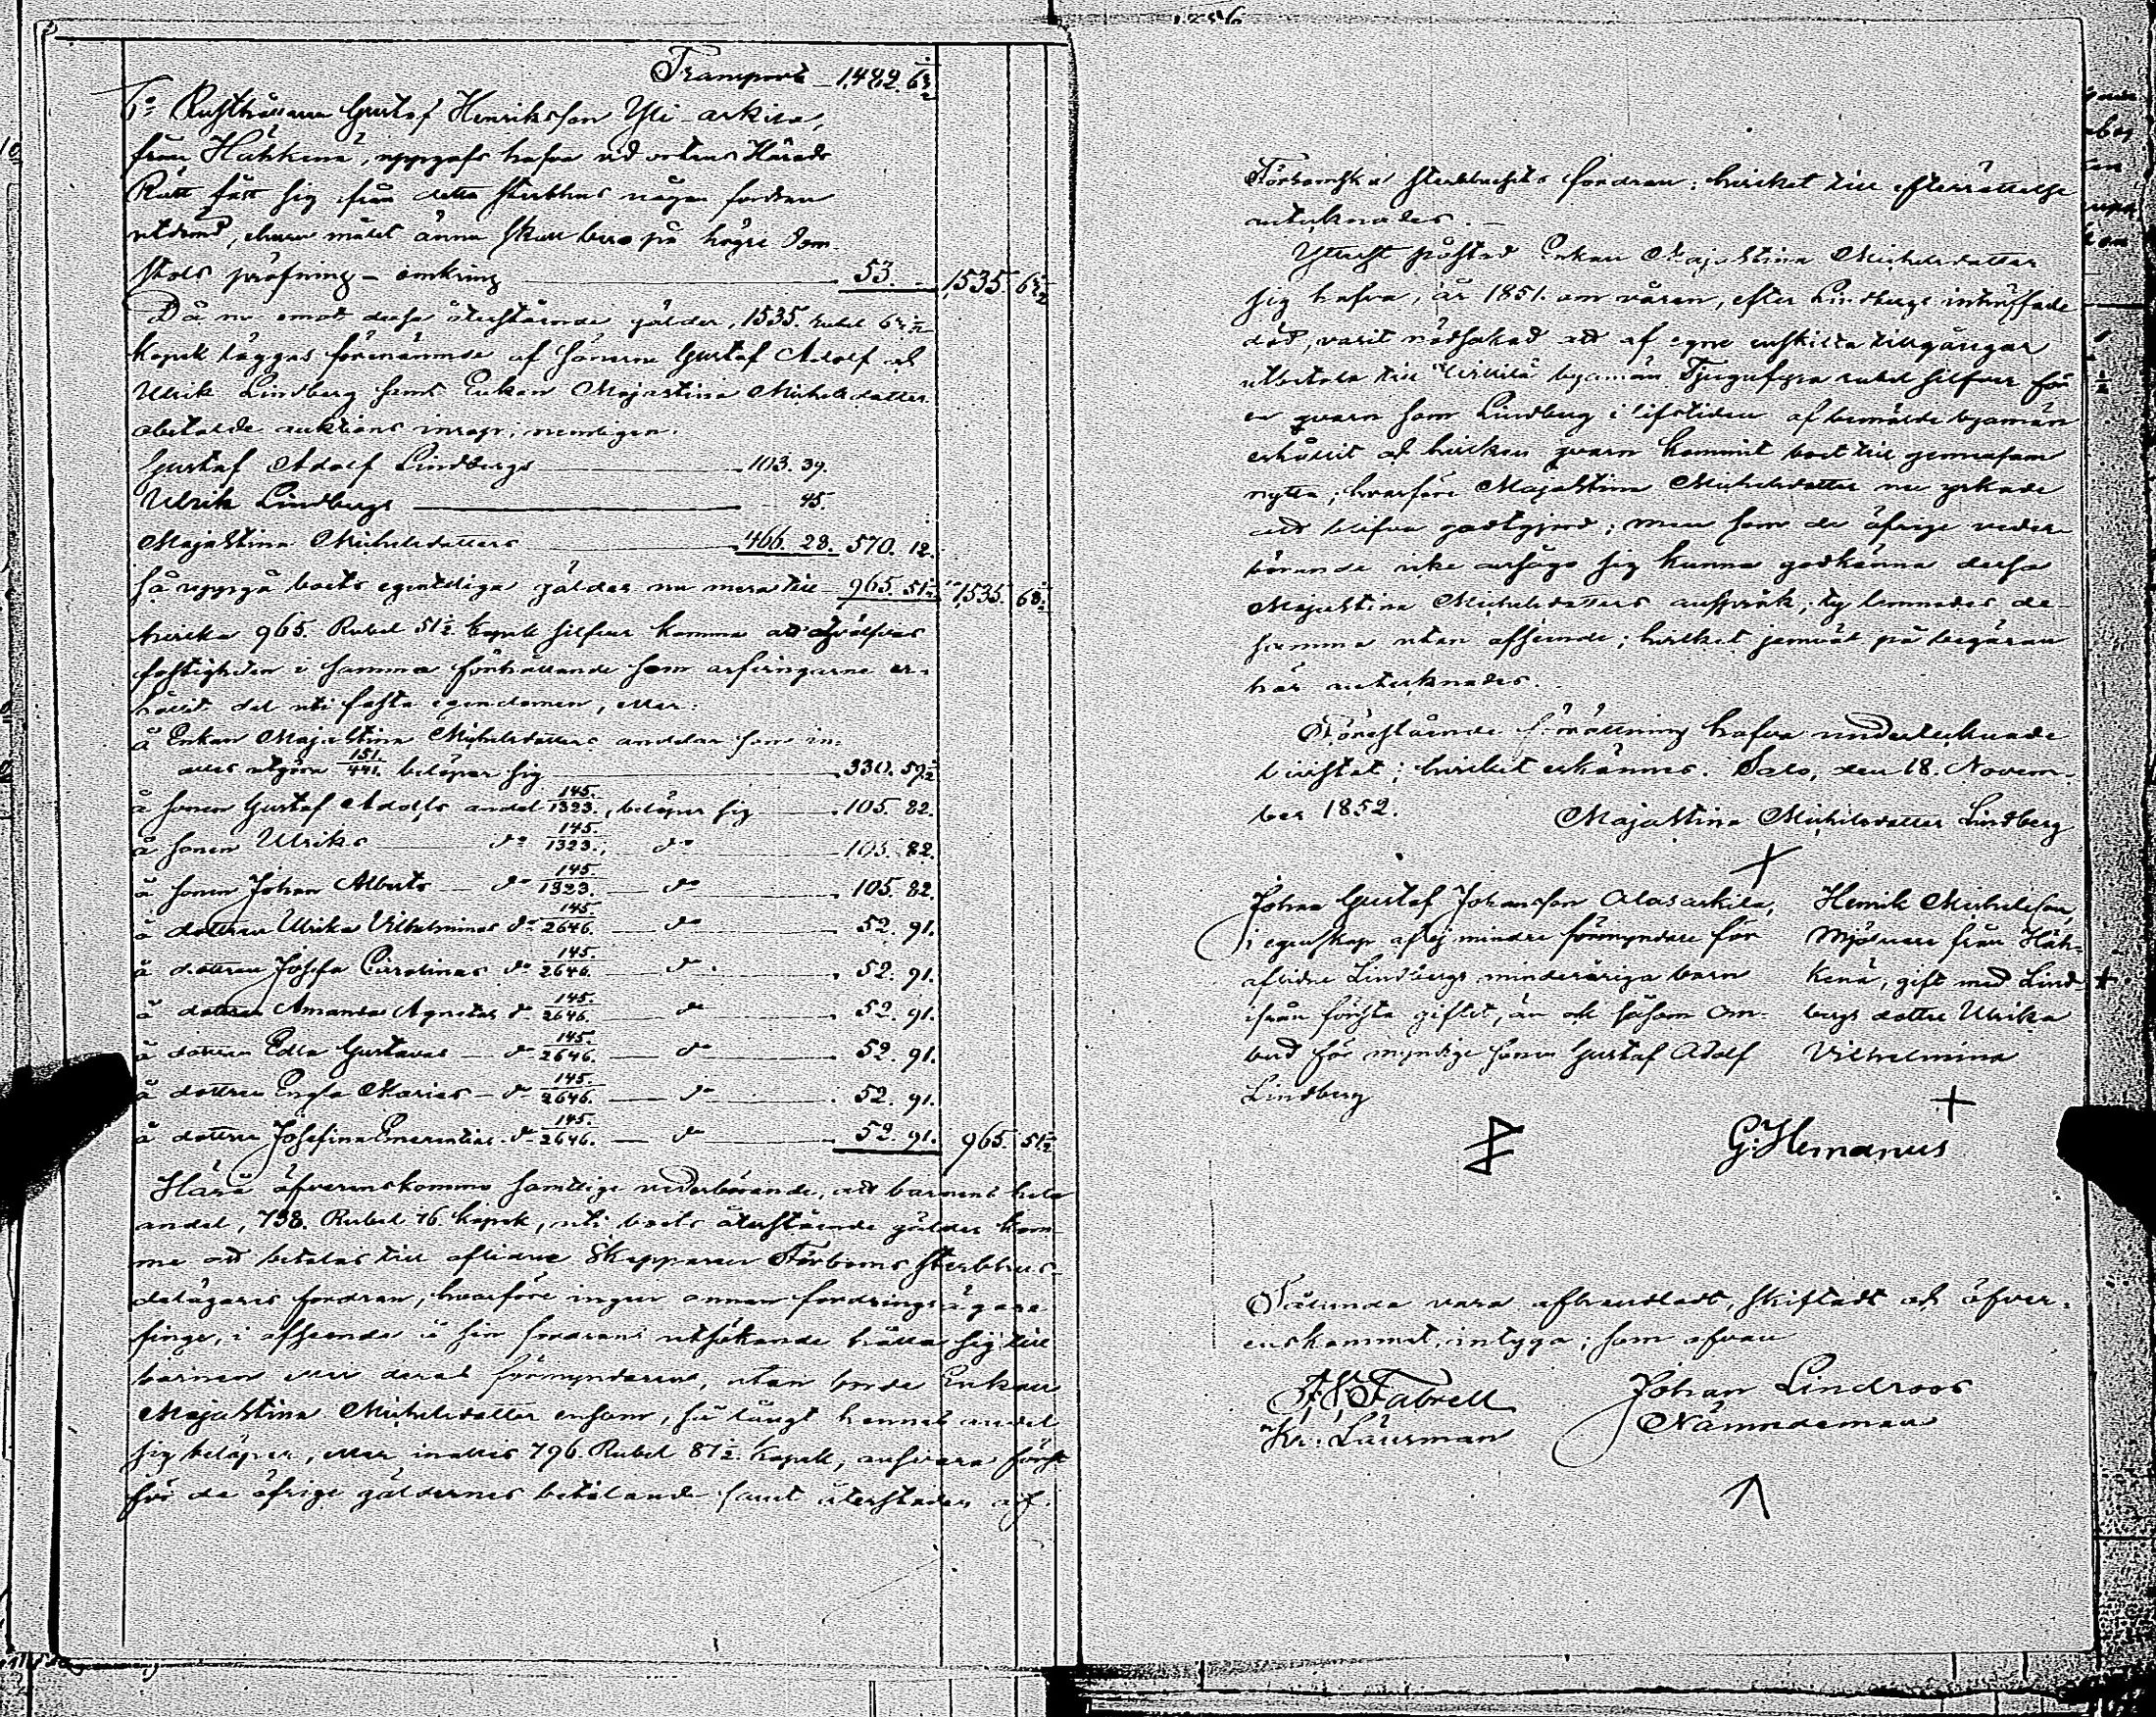 Transport — 1482. 6 1/2
T:o Rusthållaren Gustaf Henriksson Yli-arkila,
från Hähkenä, uppgafs hafva vid ortens Härads
Rätt fått sig från detta sterbhus någon fordran
utdömd, ehuru målet ännu skall bero på högre Dom-
stols pröfning — omkring — 53. — 1,535. 6 1/2
Då nu emot dessa återstående gälder, 1535. rubel 6 1/2
kopek läggas förenämnde af sönerne Gustaf Adolf och
Ulrik Lindberg samt Enkan Majastina Michelsdotter
obetalde auktions inrop, nemligen:
Gustaf Adolf Lindbergs — 103. 39.
Ulrik Lindbergs — 45.
Majastina Michelsdotters — 466. 28. 570. 12.
så uppgå boets egentliga gälder nu mera till — 965. 51 1/2 1,535. 63 1/2
hvilka 965. Rubel 51 1/2 kopek silfver komma att åhvälfvas
fastigheten i samma förhållande som arfvingarne er-
hållit del uti fasta egendomen, eller:
å Enkan Majastina Michelsdotters andelar som in-
alles utgöra 151/441. belöper sig — 330. 59 1/2
å sonen Gustaf Adolfs andel 145/1323., belöper sig — 105. 82.
å sonen Ulriks — d:o 145/1323., d:o — 105. 82.
å sonen Johan Alberts — d:o 145/1323. — d:o — 105. 82.
å dottren Ulrika Vilhelminas d:o 145/2646. — d:o — 52. 91.
å dottren Josefa Carolinas d:o 145/2646. — d:o — 52. 91.
å dottren Amanda Agnetas d:o 145/2646. — d:o — 52. 91.
å dottren Edla Gustavas — d:o 145/2646. — d:o — 52. 91.
å dottren Engla Marias — d:o 145/2646. — d:o — 52. 91.
å dottren Josefina Emerentias d:o 145/2646. — d:o — 52. 91. 965. 51 1/2
Härå öfverenskommo samtlige vederbörande, att barnens hela
andel, 738. Rubel 76 kopek, uti boets återstående gälder kom-
me att betalas till aflidne Skepparen Förboms sterbhus-
delägares fordran, hvarföre ingen annan fordringsägare
finge, i afseende å sin fordrans utsökande hålla sig till
barnen eller deras förmyndaren, utan borde Enkan
Majastina Michelsdotter ensam, så långt hennes andel
sig belöper, eller inalles 796. Rubel 87 1/2. kopek, ansvara först
för de öfrige gäldernes betalande samt återstoden af
Förbomska sterbhusets fordran; hvilket till efterrättelse
antecknades. —
Ytterst påstod Enkan Majastina Michelsdotter
sig hafva, år 1851. om våren, efter Lindbergs inträffade
död, varit nödsakad att af egne enskilta tillgångar
utbetala till byamän Tjugufyra rubel silfver för
en qvarn som Lindberg i lifstiden af bemälde byamän
erhållit och hvilken qvarn kommit boet till gemensam
nytta; hvarföre Majastina Michelsdotter nu yrkade
att blifva godtgjord; men som de öfrige veder-
börande icke ansågo sig kunna godkänna dessa
Majastina Michelsdotters anspråk, ty lemnades de-
samma utan afseende; hvilket jemväl på begäran
här antecknades.
Förestående förrättning hafva undertecknade
bivistat; hvilket erkännes. Salo, den 18. Novem-
ber 1852. Majastina Michelsdotter Lindberg
Johan Gustaf Johansson Alasarkila,
i egenskap af ej mindre förmyndare för
aflidne Lindbergs minderåriga barn
ifrån första giftet, än ock såsom Om-
bud för myndige sonen Gustaf Adolf
Lindberg
Henrik Michelsson,
Mjölnare från Häh-
kenä, gift med Lind-
bergs dotter Ulrika
Vilhelmina
G: Hemanus
Sålunda vara afhandladt, skiftadt och öfver-
enskommet, intyga; som ofvan
Kr: Länsman
Johan Lindroos
Nämndeman